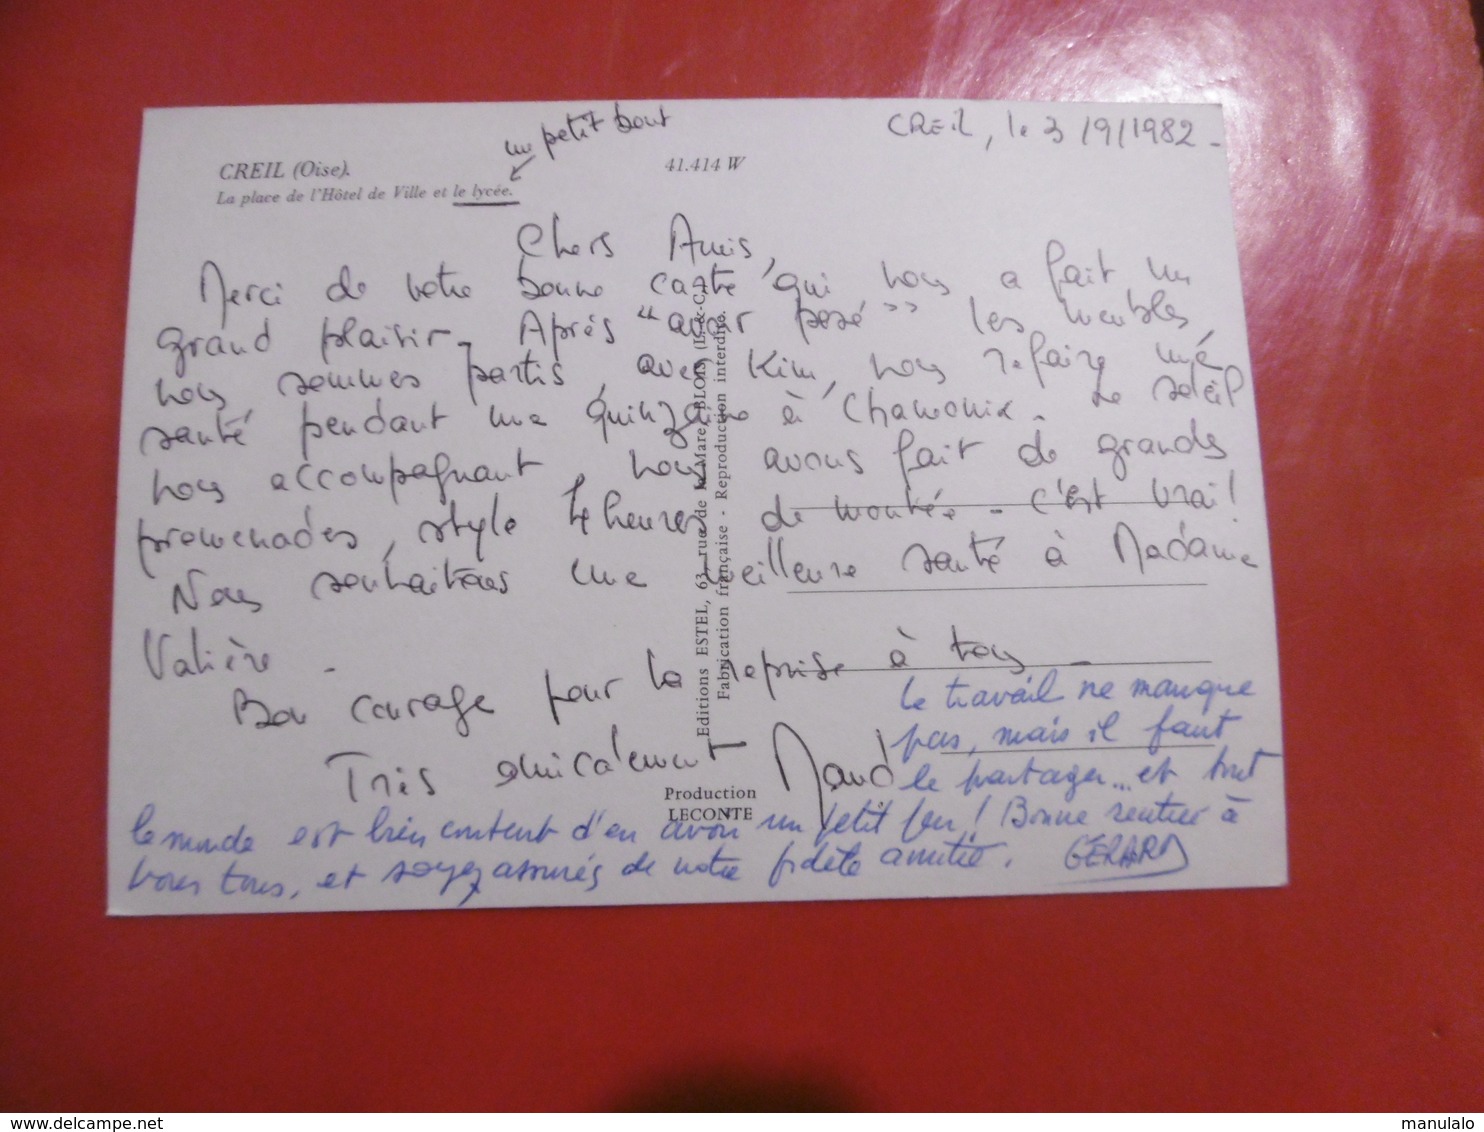 un petit bout
CREIL, le 3/9/1982 -
CREIL (Oise).
41.414 W
La place de l'Hôtel de Ville et le lycée.
Chers Amis,
Merci de votre bonne carte qui nous a fait un
grand plaisir - Après "avoir posé" les meubles,
nous sommes partis, avec Kim, nous refaire une
santé pendant une quinzaine à Chamonix - Le soleil
nous accompagnant, nous avons fait de grandes
promenades, style 4 heures de montée - c'est vrai!
Nous souhaitons une meilleure santé à Madame
Valière -
Bon courage pour la reprise à tous -
Très amicalement Maud
Le travail ne manque
pas, mais il faut
le partager... et tout
le monde est bien content d'en avoir un petit peu! Bonne rentrée à
vous tous, et soyez assurés de notre fidèle amitié. GERARD
Editions ESTEL, 63, rue de la Mare, BLOIS (L.-&-C.)
Fabrication française - Reproduction interdite.
Production
LECONTE
www.delcampe.net
manulalo